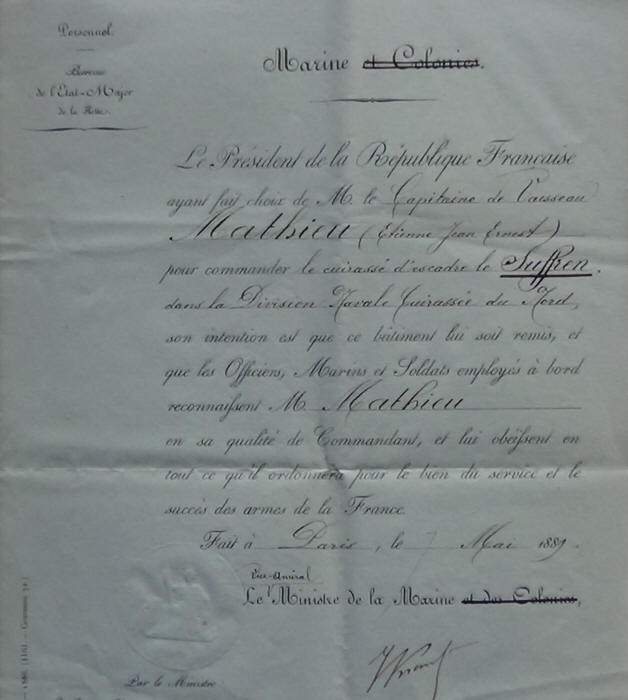 Personnel.
Bureau
de l'État-Major
de la Flotte.
Marine et Colonies.
Le Président de la République Française
ayant fait choix de M. le Capitaine de Vaisseau
Mathieu (Etienne Jean Ernest)
pour commander le cuirassé d'escadre le Suffren.
dans la Division Navale Cuirassée du Nord,
son intention est que ce bâtiment lui soit remis, et
que les Officiers, Marins et Soldats employés à bord
reconnaissent M. Mathieu
en sa qualité de Commandant, et lui obéissent en
tout ce qu'il ordonnera pour le bien du service et le
succès des armes de la France.
Fait à Paris, le 7 Mai 1889.
Vice-Amiral
Le Ministre de la Marine et des Colonies,
Par le Ministre